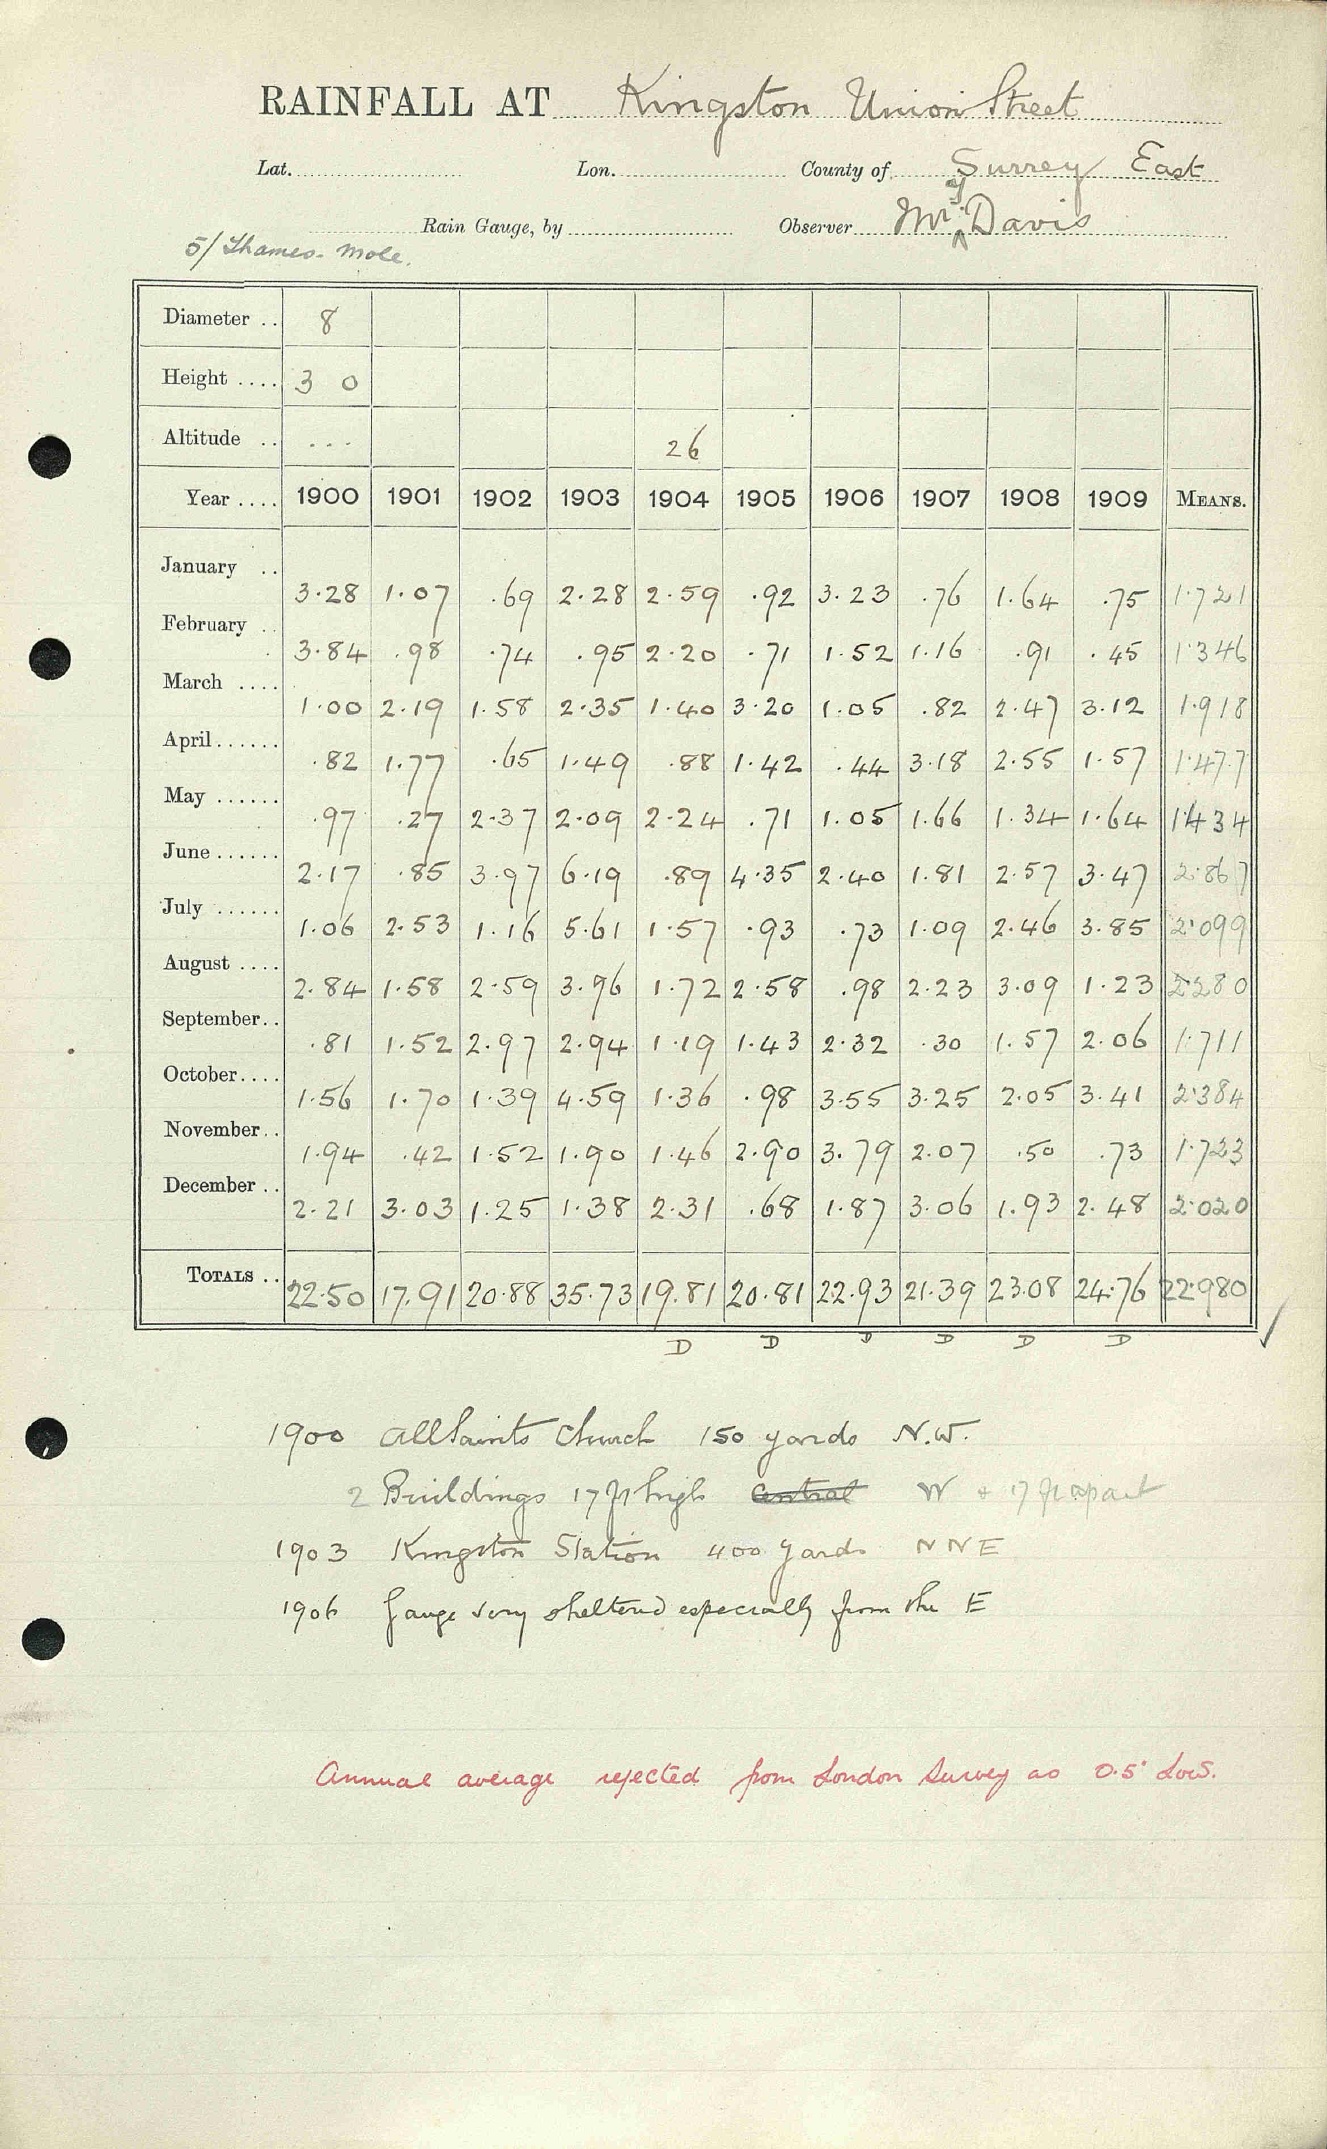 RAINFALL AT Kingston Union Street
Lat. Lon. County of Surrey East
Rain Gauge, by Observer Mr J. Davis
5/ Thames. Mole.
Diameter .. 8
Height .... 3 0
Altitude .. ... 26
Year .... 1900 1901 1902 1903 1904 1905 1906 1907 1908 1909 MEANS.
January .. 3.28 1.07 .69 2.28 2.59 .92 3.23 .76 1.64 .75 1.721
February .. 3.84 .98 .74 .95 2.20 .71 1.52 1.16 .91 .45 1.346
March .... 1.00 2.19 1.58 2.35 1.40 3.20 1.05 .82 2.47 3.12 1.918
April ...... .82 1.77 .65 1.49 .88 1.42 .44 3.18 2.55 1.57 1.477
May ...... .97 .27 2.37 2.09 2.24 .71 1.05 1.66 1.34 1.64 1.434
June ...... 2.17 .85 3.97 6.19 .89 4.35 2.40 1.81 2.57 3.47 2.867
July ...... 1.06 2.53 1.16 5.61 1.57 .93 .73 1.09 2.46 3.85 2.099
August .... 2.84 1.58 2.59 3.96 1.72 2.58 .98 2.23 3.09 1.23 2.280
September.. .81 1.52 2.97 2.94 1.19 1.43 2.32 .30 1.57 2.06 1.711
October.... 1.56 1.70 1.39 4.59 1.36 .98 3.55 3.25 2.05 3.41 2.384
November.. 1.94 .42 1.52 1.90 1.46 2.90 3.79 2.07 .50 .73 1.723
December .. 2.21 3.03 1.25 1.38 2.31 .68 1.87 3.06 1.93 2.48 2.020
TOTALS .. 22.50 17.91 20.88 35.73 19.81 20.81 22.93 21.39 23.08 24.76 22.980
D D D D D D
1900 All Saints Church 150 yards N.W.
2 Buildings 17 ft high Central W & 17 ft apart
1903 Kingston Station 400 yards NNE
1906 Gauge very sheltered especially from the E
Annual average rejected from London Survey as 0.5" low.